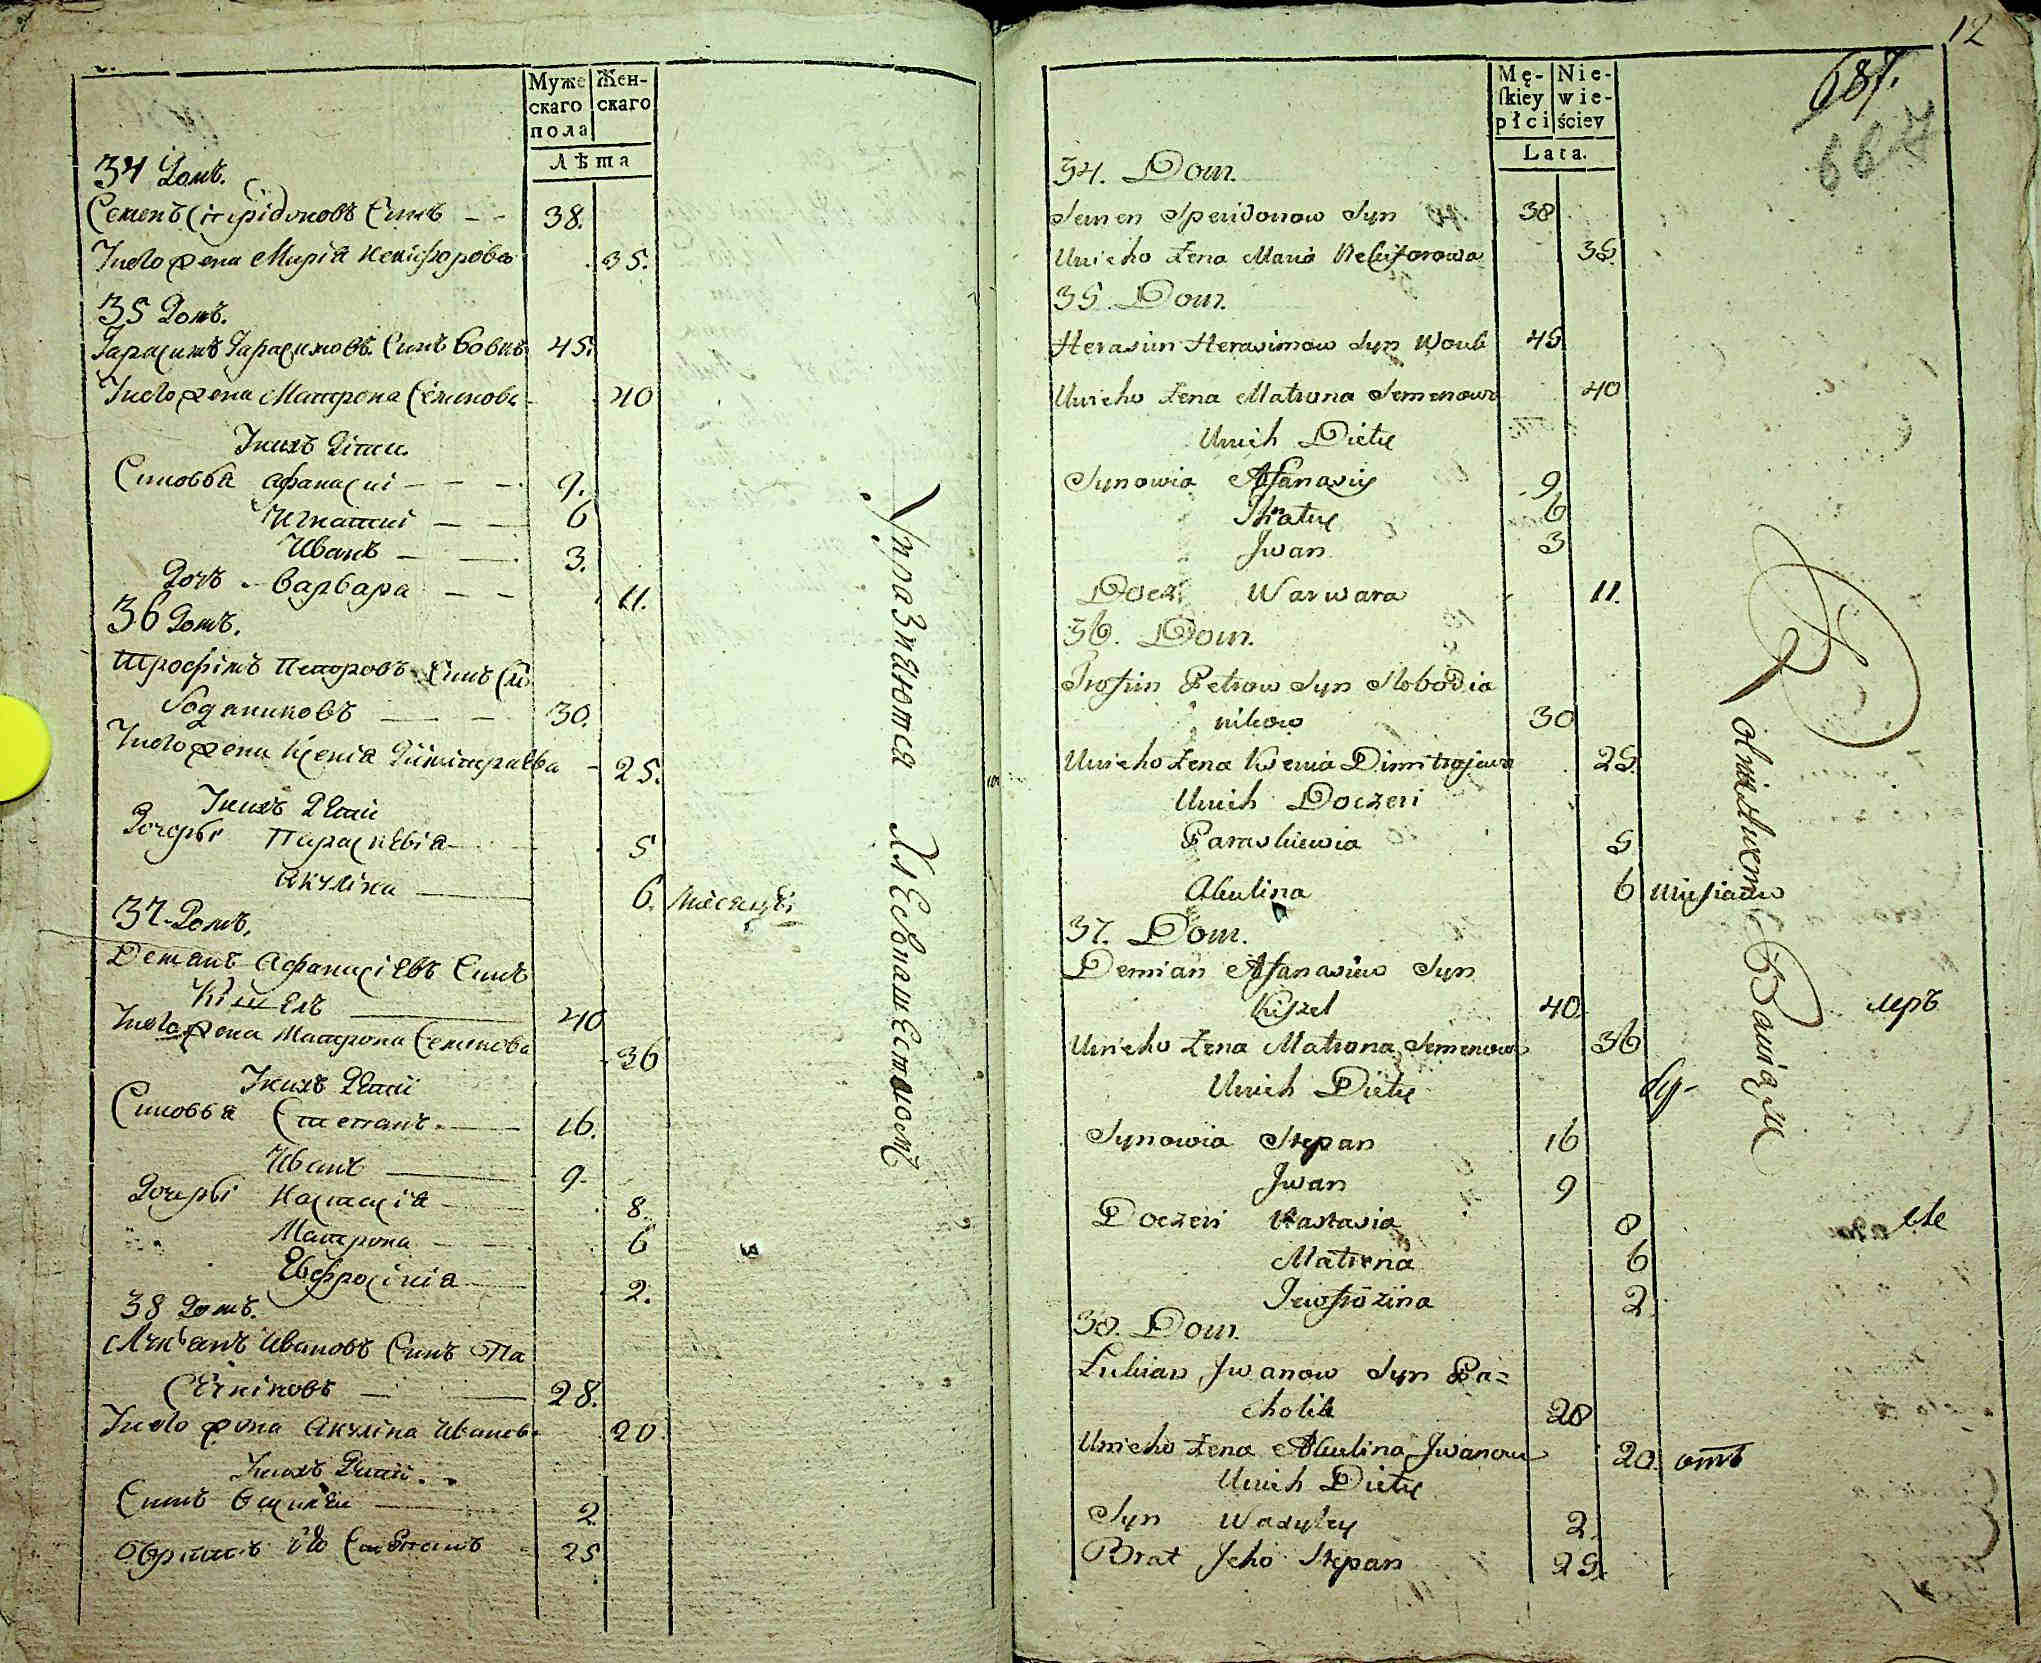 Муже
скаго
пола
Жен-
скаго
Лѣта
34 Домъ.
Семенъ Спиридоновъ Синъ 38.
Унего жена Марія Некифорова 35.
35 Домъ.
Гарасимъ Гарасимовъ Синъ Вовкъ 45.
Унего жена Матрона Семенова 40
Унихъ Дѣти
Синовья Афанасиі 9.
Игнатиі 6
Иванъ 3.
Дочь Варвара 11.
36 Домъ.
Трофімъ Петровъ Синъ Сло
бодяниковъ 30.
Унего жена Ксенія Димитраева 25.
Унихъ Дѣтиі
Дочеры Параскевія 5
Акуліна 6. Місяцъі
37 Домъ.
Демянъ Афанасіевъ Синъ
Кішель 40
Унего жена Матрона Семенова 36
Унихъ Дѣтиі
Синовья Степанъ 16.
Иванъ 9
Дочеры Настасія 8.
Матрона 6
Евфросінія 2.
38 Домъ.
Лукьянъ Ивановъ Синъ Па
28.
Унего жена Акуліна Иванов 20.
Унихъ Дѣтиі
Синъ Василеи 2
братъ его Степанъ 25
Упразняются Хлебопашествомъ
12
687.
667
Mę-
skiey
płci
Nie-
wie-
ściey
Lata.
34. Dom.
Semen Speridonow Syn 38
Unieho Żena Maria Nekiforowa 35.
35 Dom.
Herasim Herasimow Syn Wouk 45
Unieho Żena Matrona Semenowa 40
Unich Diety
Synowia Afanasiy 9
Ihnatiy 6
Jwan 3
Docz Warwara 11.
36. Dom.
Trofim Petrow Syn Slobodia
nikow 30
Unieho Żena Ksenia Dimitrojewa 25
Unich Doczeri
Paraskiewia 5
Akulina 6 miesiacow
37. Dom.
Demian Afanasiew Syn
Kiszel 40
Unieho Żena Matrona Semenowa 36
Unich Diety
Synowia Stepan 16
Jwan 9
Doczeri Nastasia 8
Matrona 6
Jewfrozina 2
38. Dom.
Lukian Jwanow Syn Pa=
cholik 28
Unieho Żena Akulina Jwanowa 20.
Unich Diety
Syn Wasyley 2.
Brat Jeho Stepan 25.
Rolnictwem Bawią się